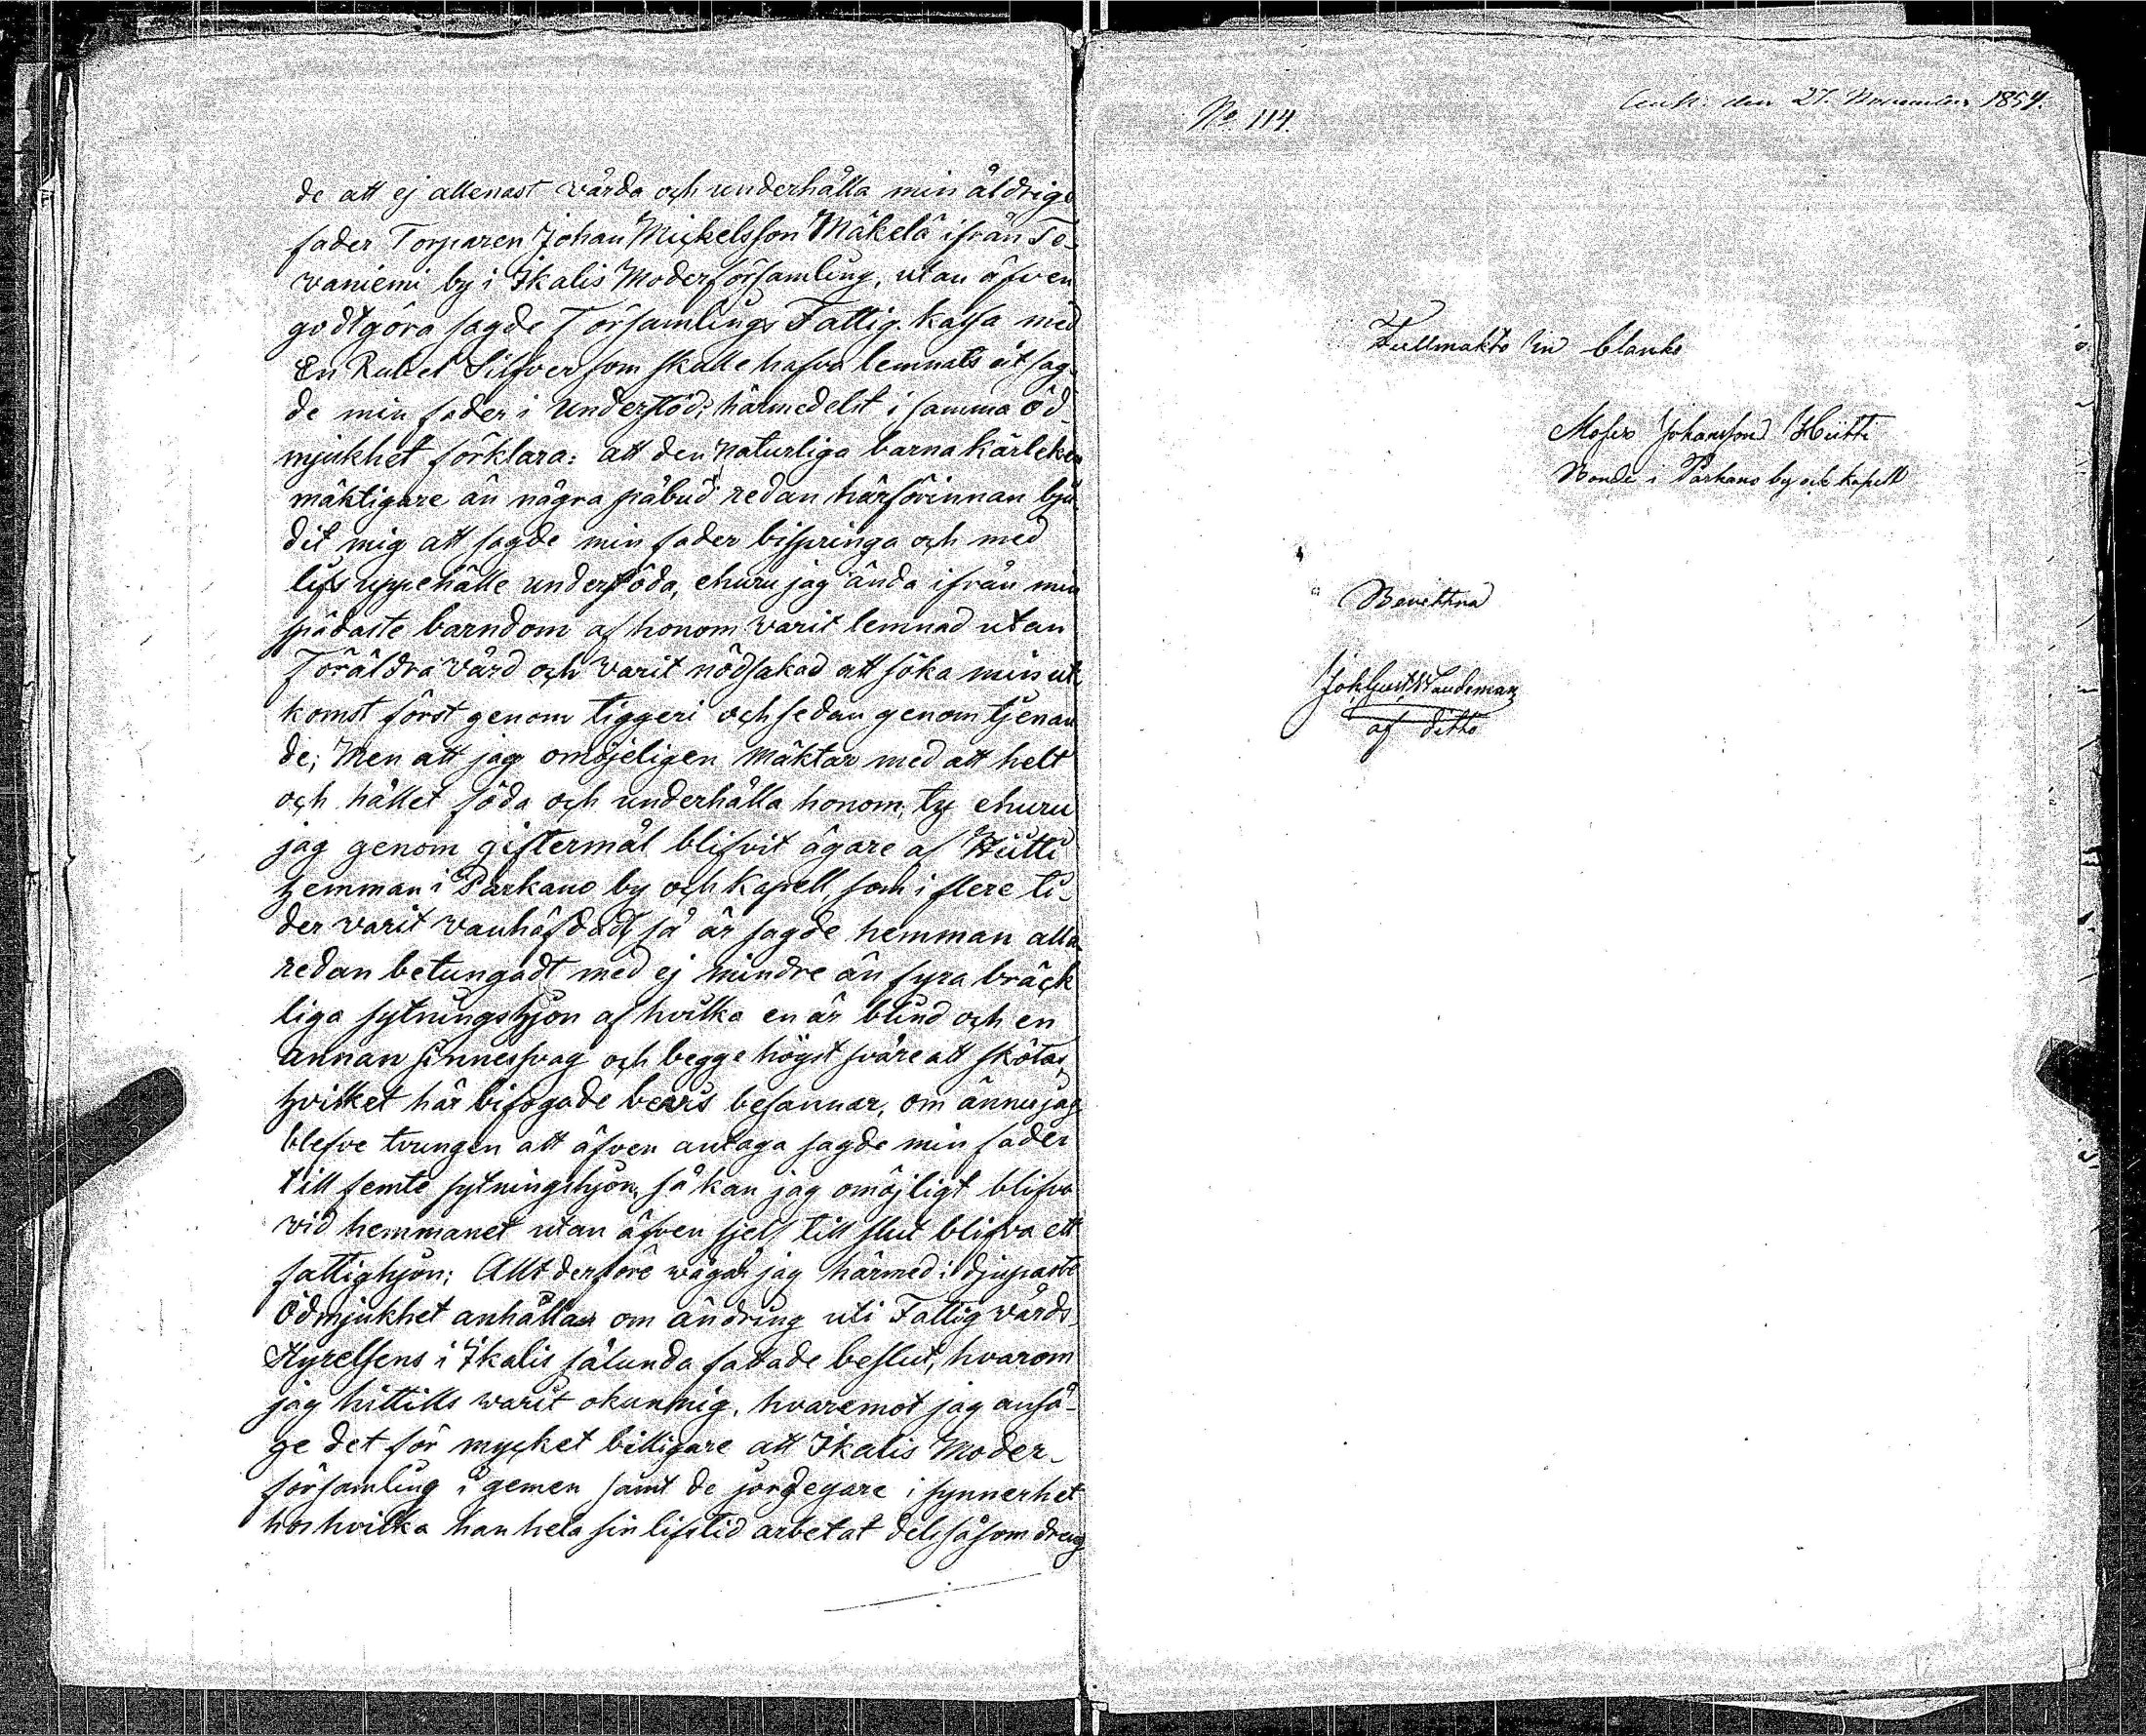 de att ej allenast vårda och underhålla min åldrige
fader Torparen Johan Mickelsson Mäkelä ifrån To-
vaniemi by i Ikalis Moderförsamling, utan äfven
godtgöra sagde Församlings Fattig-kassa med
En Rubel Silfver som skalle hafva lemnats åt sag-
de min fader i understöd; härmedelst i samma öd-
mjukhet förklara: att den naturliga barnakärleken
mäktigare än några påbud redan härförinnan bju-
dit mig att sagde min fader bispringa och med
lifs uppehälle understöda, ehuru jag ända ifrån min
spädaste barndom af honom varit lemnad utan
Föräldra vård och varit nödsakad att söka min ut-
komst först genom tiggeri och sedan genom tjenan
de; Men att jag omöjeligen mäktar med att helt
och hållet föda och underhålla honom, ty ehuru
jag genom giftermål blifvit ägare af Hütti
hemman i Parkano by och Kapell, som i flere ti-
der varit vanhäfdadt, så är sagde hemman alla-
redan betungadt med ej mindre än fyra bräck
liga sytningshjon af hvilka en är blind och en
annan sinnessvag och begge högst svåre att skötas,
hvilket här bifogade bevis besannar, om ännu jag
blefve tvungen att äfven antaga sagde min fader
till femte sytningshjon, så kan jag omöjligt blifva
vid hemmanet utan äfven sjelf till slut blifva ett
fattighjon; Allt derföre vågar jag härmed i djupaste
Ödmjukhet anhålla om ändring uti Fattigvårds
Styrelsens i Ikalis sålunda fattade beslut, hvarom
jag hittills varit okunnig, hvaremot jag anså-
ge det för mycket billigare att Ikalis Moder-
församling i gemen samt de jordegare i synnerhet
hos hvilka han hela sin lifstid arbetat dels såsom dreng
No. 114.
den 27. November 1854.
Fullmakt in blanko
Moses Johansson Hütti
Bonde i Parkano by och kapell
Bevittna
Joh Gust Sandeman
af ditto